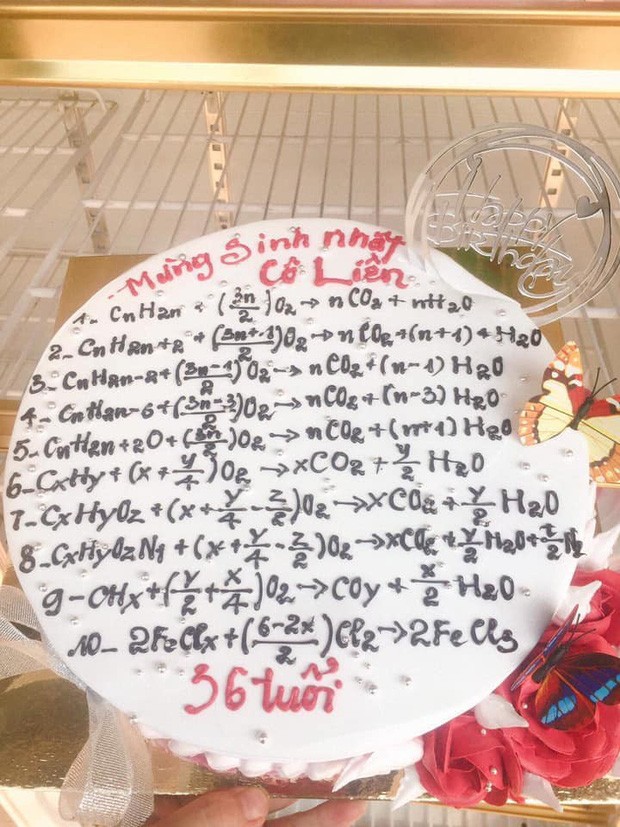 Happy
Birthday
Mừng Sinh nhật
Cô Liên
1- CnH2n + (3n/2)O2 → nCO2 + nH2O
2- CnH2n+2 + (3n+1/2)O2 → nCO2 + (n+1) + H2O
3- CnH2n-2 + (3n-1/2)O2 → nCO2 + (n-1) H2O
4- CnH2n-6 + (3n-3/2)O2 → nCO2 + (n-3) H2O
5- CnH2n+2O + (3n/2)O2 → nCO2 + (n+1) H2O
6- CxHy + (x + y/4)O2 → xCO2 + y/2 H2O
7- CxHyOz + (x + y/4 - z/2)O2 → xCO2 + y/2 H2O
8- CxHyOzN1 + (x + y/4 - z/2)O2 → xCO2 + y/2 H2O + t/2 N2
9- CHx + (y/2 + x/4)O2 → COy + x/2 H2O
10- 2FeClx + (6-2x/2)Cl2 → 2FeCl3
36 tuổi